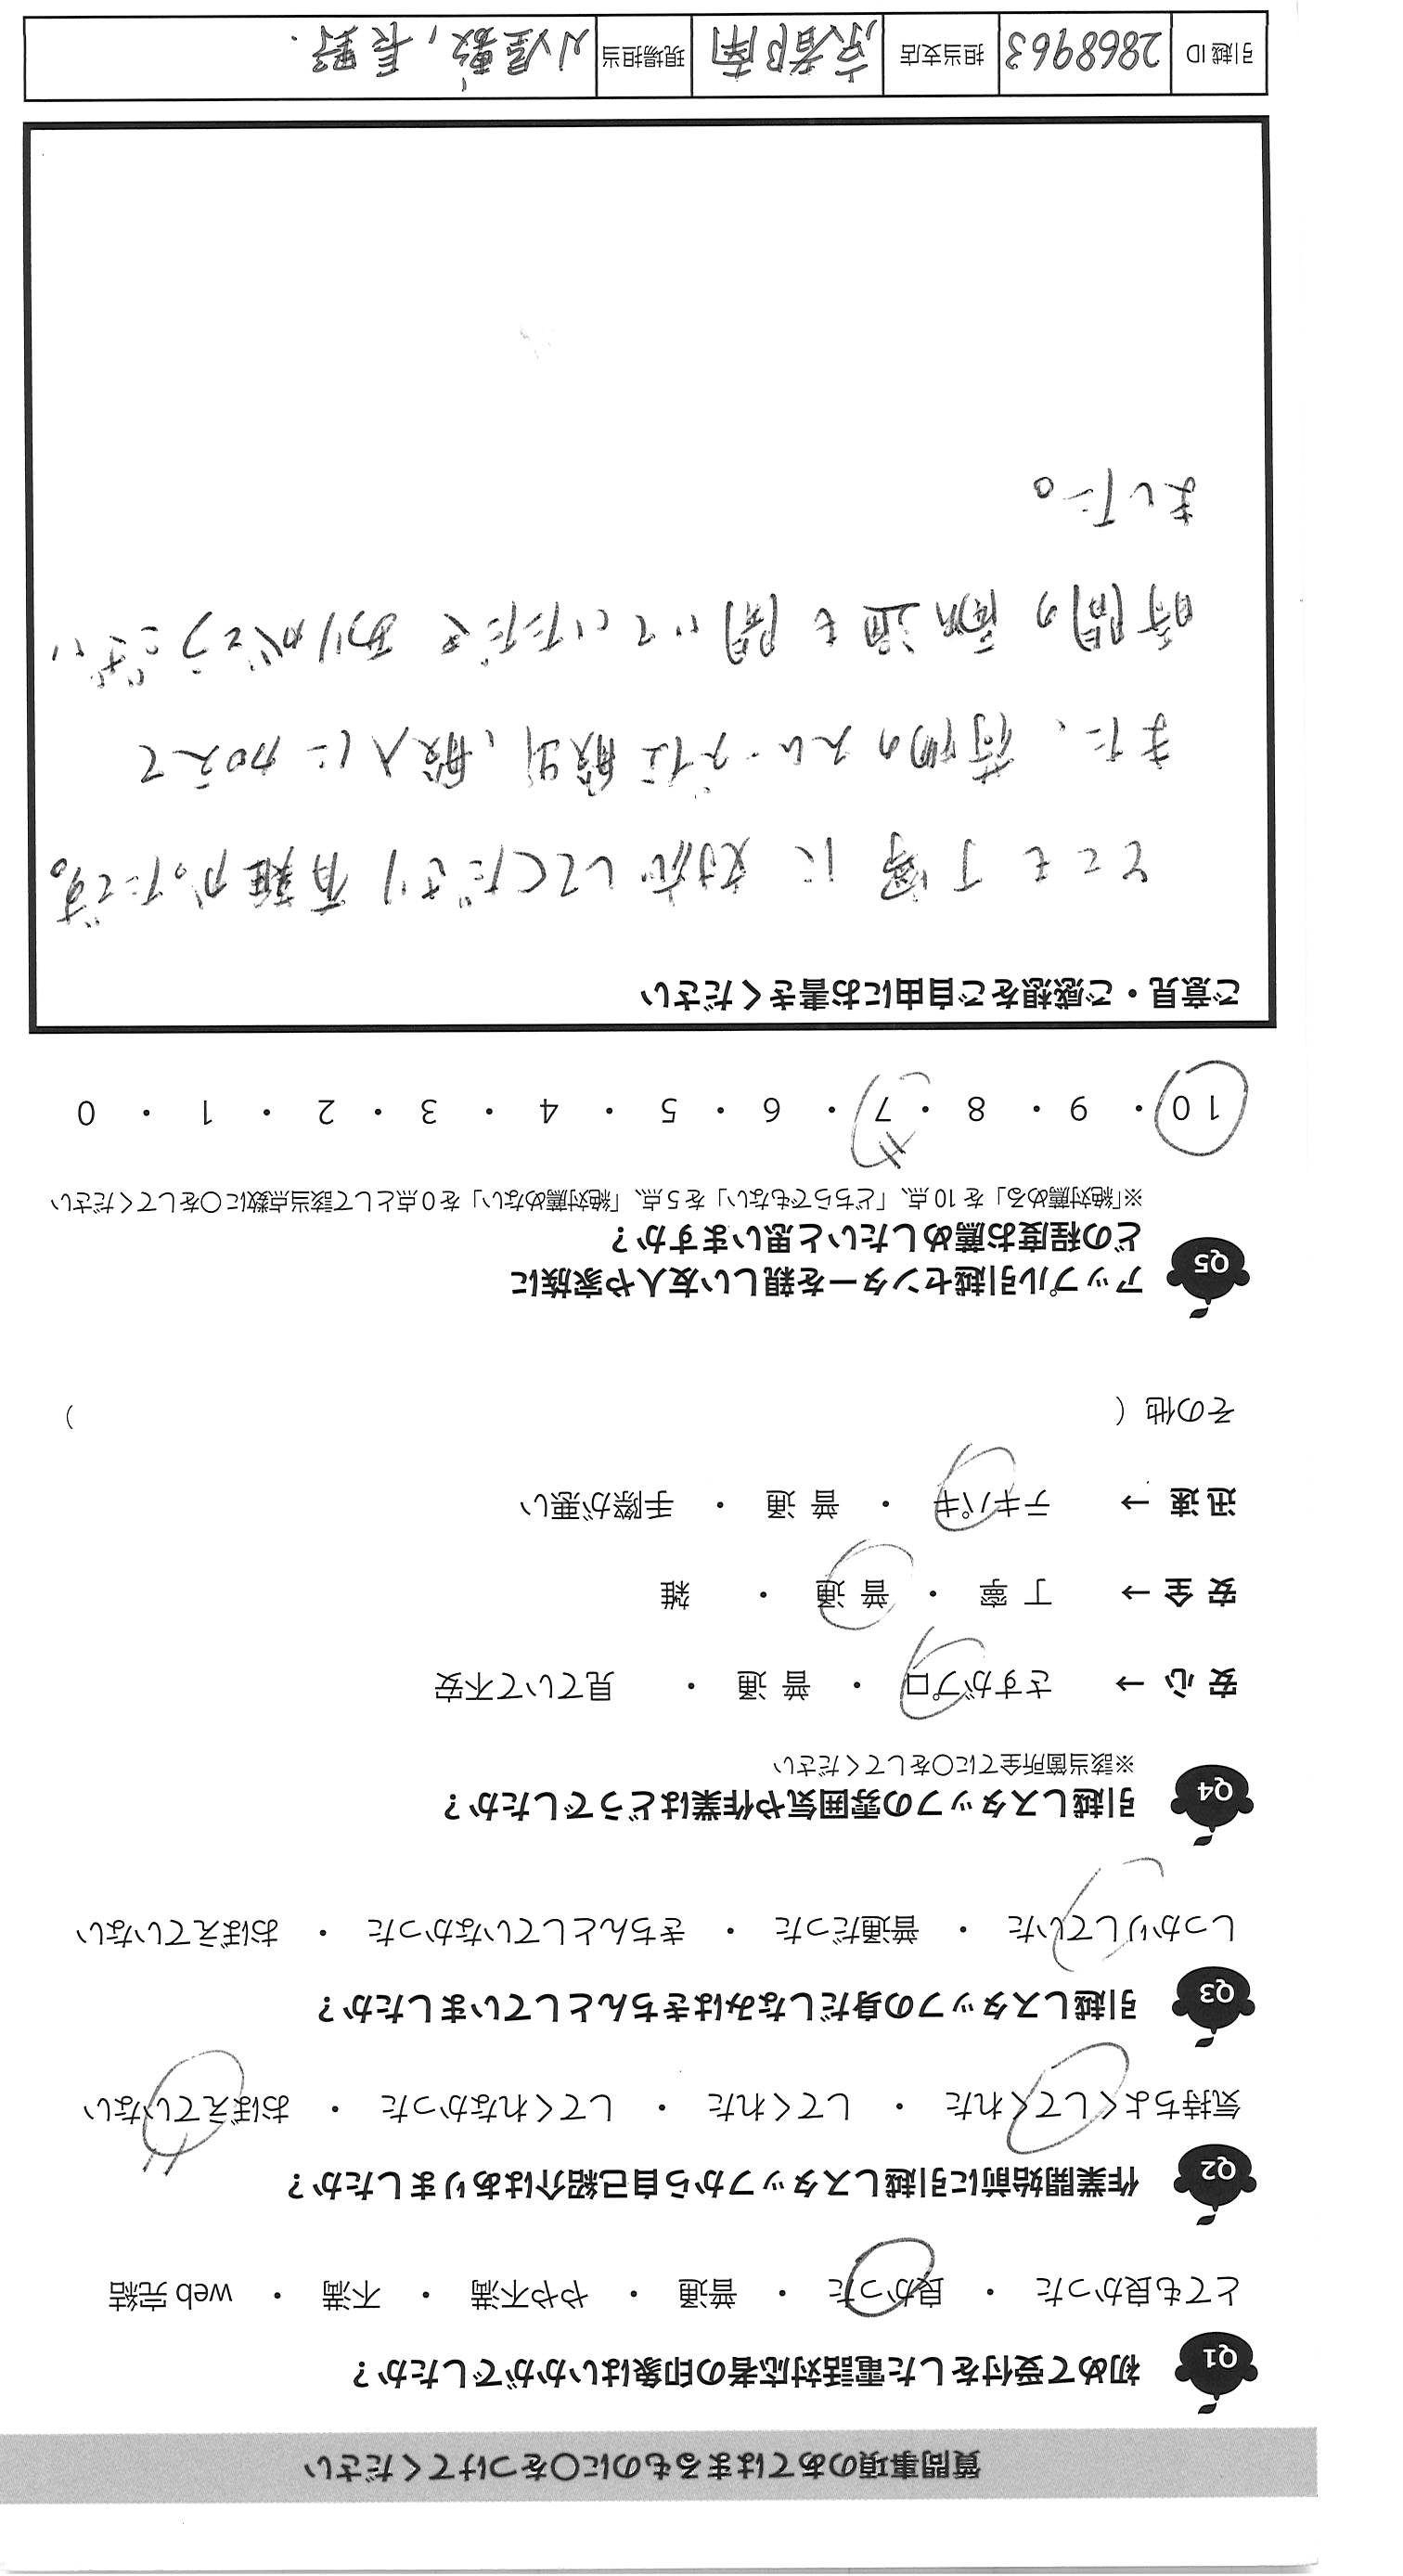 質問事項のあてはまるものに〇をつけてください
Q1 初めて受付をした電話対応者の印象はいかがでしたか？
とても良かった ・ 良かった ・ 普通 ・ やや不満 ・ 不満 ・ web 完結
Q2 作業開始前に引越しスタッフから自己紹介はありましたか？
気持ちよくしてくれた ・ してくれた ・ してくれなかった ・ おぼえていない
Q3 引越しスタッフの身だしなみはきちんとしていましたか？
しっかりしていた ・ 普通だった ・ きちんとしていなかった ・ おぼえていない
Q4 引越しスタッフの雰囲気や作業はどうでしたか？
※該当箇所全てに〇をしてください
安 心 → さすがプロ ・ 普 通 ・ 見ていて不安
安 全 → 丁 寧 ・ 普 通 ・ 雑
迅 速 → テキパキ ・ 普 通 ・ 手際が悪い
その他（ ）
Q5 アップル引越センターを親しい友人や家族に
どの程度お薦めしたいと思いますか？
※「絶対薦める」を 10 点、「どちらでもない」を 5 点、「絶対薦めない」を 0 点として該当点数に〇をしてください
10 ・ 9 ・ 8 ・ 7 ・ 6 ・ 5 ・ 4 ・ 3 ・ 2 ・ 1 ・ 0
ご意見・ご感想をご自由にお書きください
とても丁寧に対応してくださり有難かったです。
また、荷物のスムーズな搬出、搬入に加えて
時間の融通も聞いていただきありがとうござい
ました。
引越 ID 2868963 担当支店 京都南 現場担当 小屋敷, 長野.